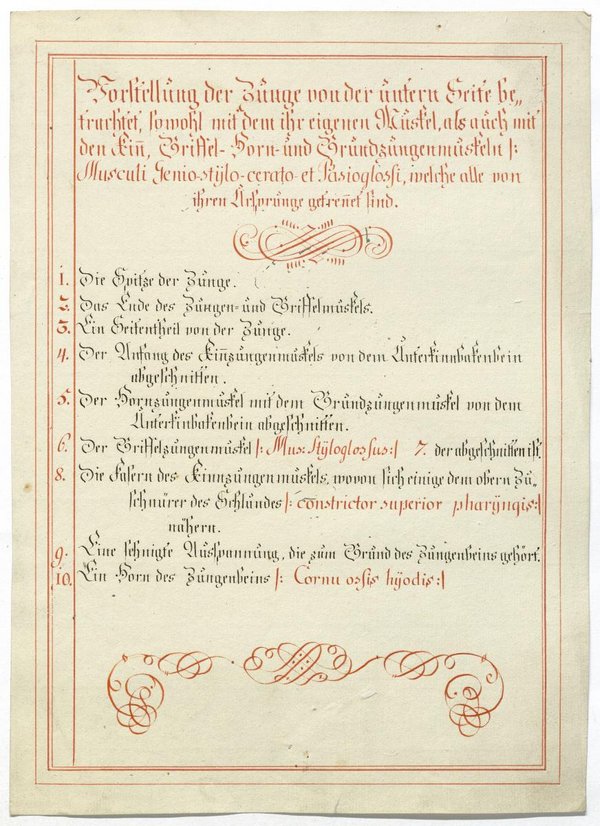 Vorstellung der Zunge von der untern Seite be„
trachtet, sowohl mit dem ihr eigenen Muskel, als auch mit
den Kin̄, Griffel- Horn- und Grundzungenmuskeln |:
Musculi Genio-stÿlo-cerato-et Basioglossi, welche alle von
ihren Ursprunge getren̄et sind.
1. Die Spitze der Zunge.
2. Das Ende des Zungen- und Griffelmuskels.
3. Ein Seitentheil von der Zunge.
4. Der Anfang des Kin̄zungenmuskels von dem Unterkinnbakenbein
abgeschnitten.
5. Der Hornzungenmuskel mit dem Grundzungenmuskel von dem
Unterkinbakenbein abgeschnitten.
6. Der Griffelzungenmuskel |: Mus: Stÿloglossus :| 7. der abgeschnitten ist.
8. Die Fasern des Kinnzungenmuskels, wovon sich einige dem obern Zu„
schnürer des Schlundes |: constrictor superior pharÿngis :|
nähern.
9. Eine sehnigte Ausspannung, die zum Grund des Zungenbeins gehört.
10. Ein Horn des Zungenbeins |: Cornu ossis hÿodis :|